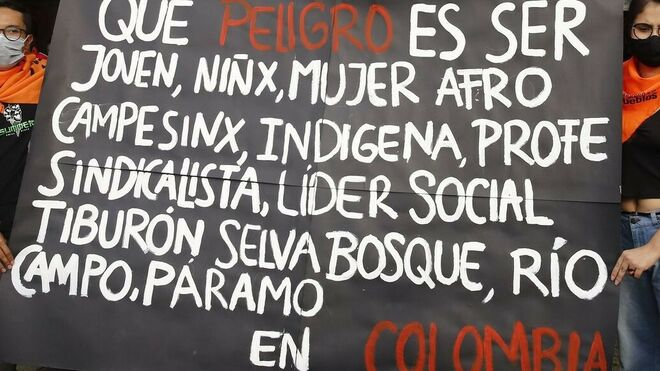 QUE PELIGRO ES SER
JOVEN, NIÑX, MUJER AFRO
CAMPESINX, INDIGENA, PROFE
SINDICALISTA, LÍDER SOCIAL
TIBURÓN SELVA BOSQUE, RÍO
CAMPO, PÁRAMO
EN COLOMBIA